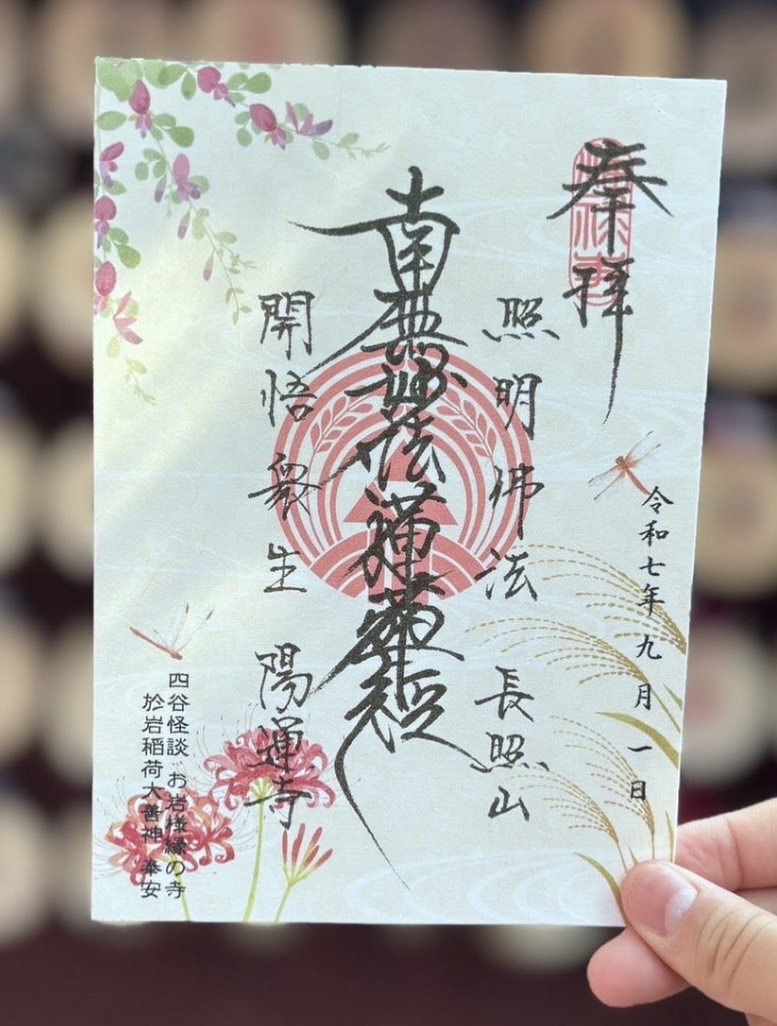 奉拝
令和七年九月一日
照明佛法 長照山
南無妙法蓮華経
開悟衆生 陽運寺
四谷怪談 お岩様縁の寺
於岩稲荷大善神 奉安